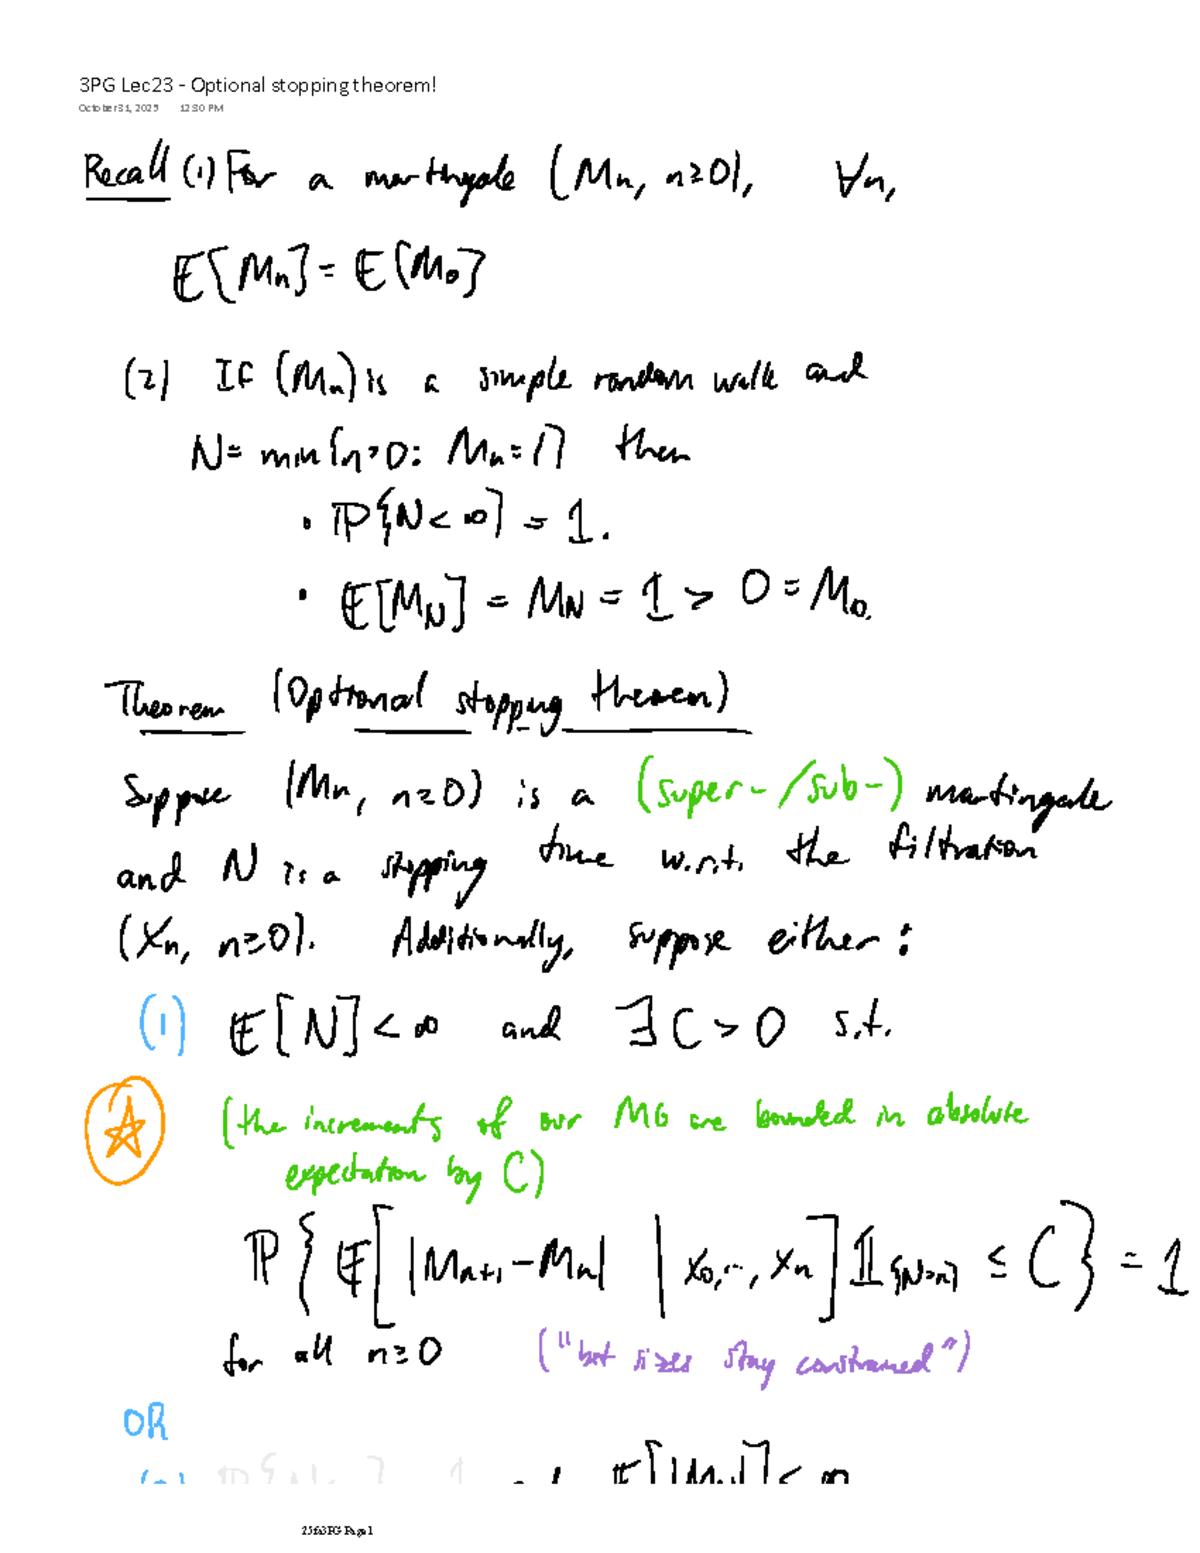 3PG Lec23 - Optional stopping theorem!
October 31, 2025 12:30 PM
Recall (1) For a martingale (Mn, n≥0), ∀n,
𝔼[Mn] = 𝔼[M0]
(2) If (Mn) is a simple random walk and
N = min{n>0: Mn=1} then
• ℙ{N<∞} = 1.
• 𝔼[MN] = MN = 1 > 0 = M0.
Theorem (Optional stopping theorem)
Suppose (Mn, n≥0) is a (super-/sub-) martingale
and N is a stopping time w.r.t. the filtration
(Xn, n≥0). Additionally, suppose either:
(1) 𝔼[N] < ∞ and ∃ C > 0 s.t.
(the increments of our MG are bounded in absolute
expectation by C)
ℙ{𝔼[|Mn+1 - Mn| | X0,..., Xn] 𝟙{N>n} ≤ C} = 1
for all n≥0 ("bet sizes stay constrained")
OR
25fa3PG Page 1